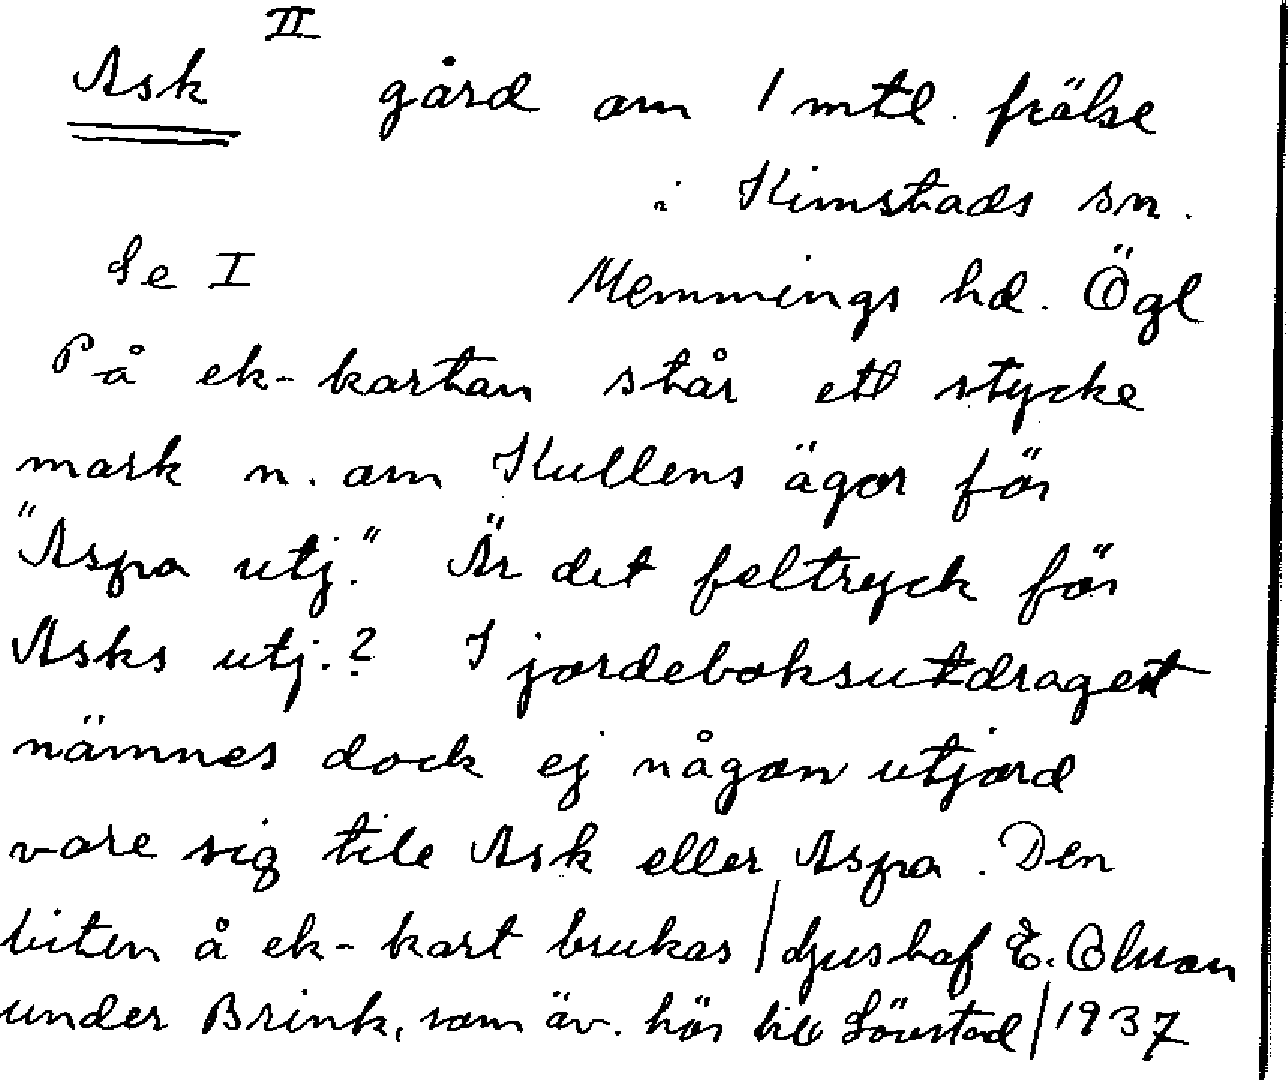 II
Ask gård om 1 mtl. frälse
i Kimstads sn.
Se I Memmings hd. Ögl
På ek-kartan står ett stycke
mark n. om Kullens ägor för
"Aspa utj." Är det feltryck för
Asks utj.? I jordeboksutdraget
nämnes dock ej någon utjord
vare sig till Ask eller Aspa. Den
biten å ek-kart brukas / djushaf E. Olson
under Brink, som äv. hör till Lövstad / 1937